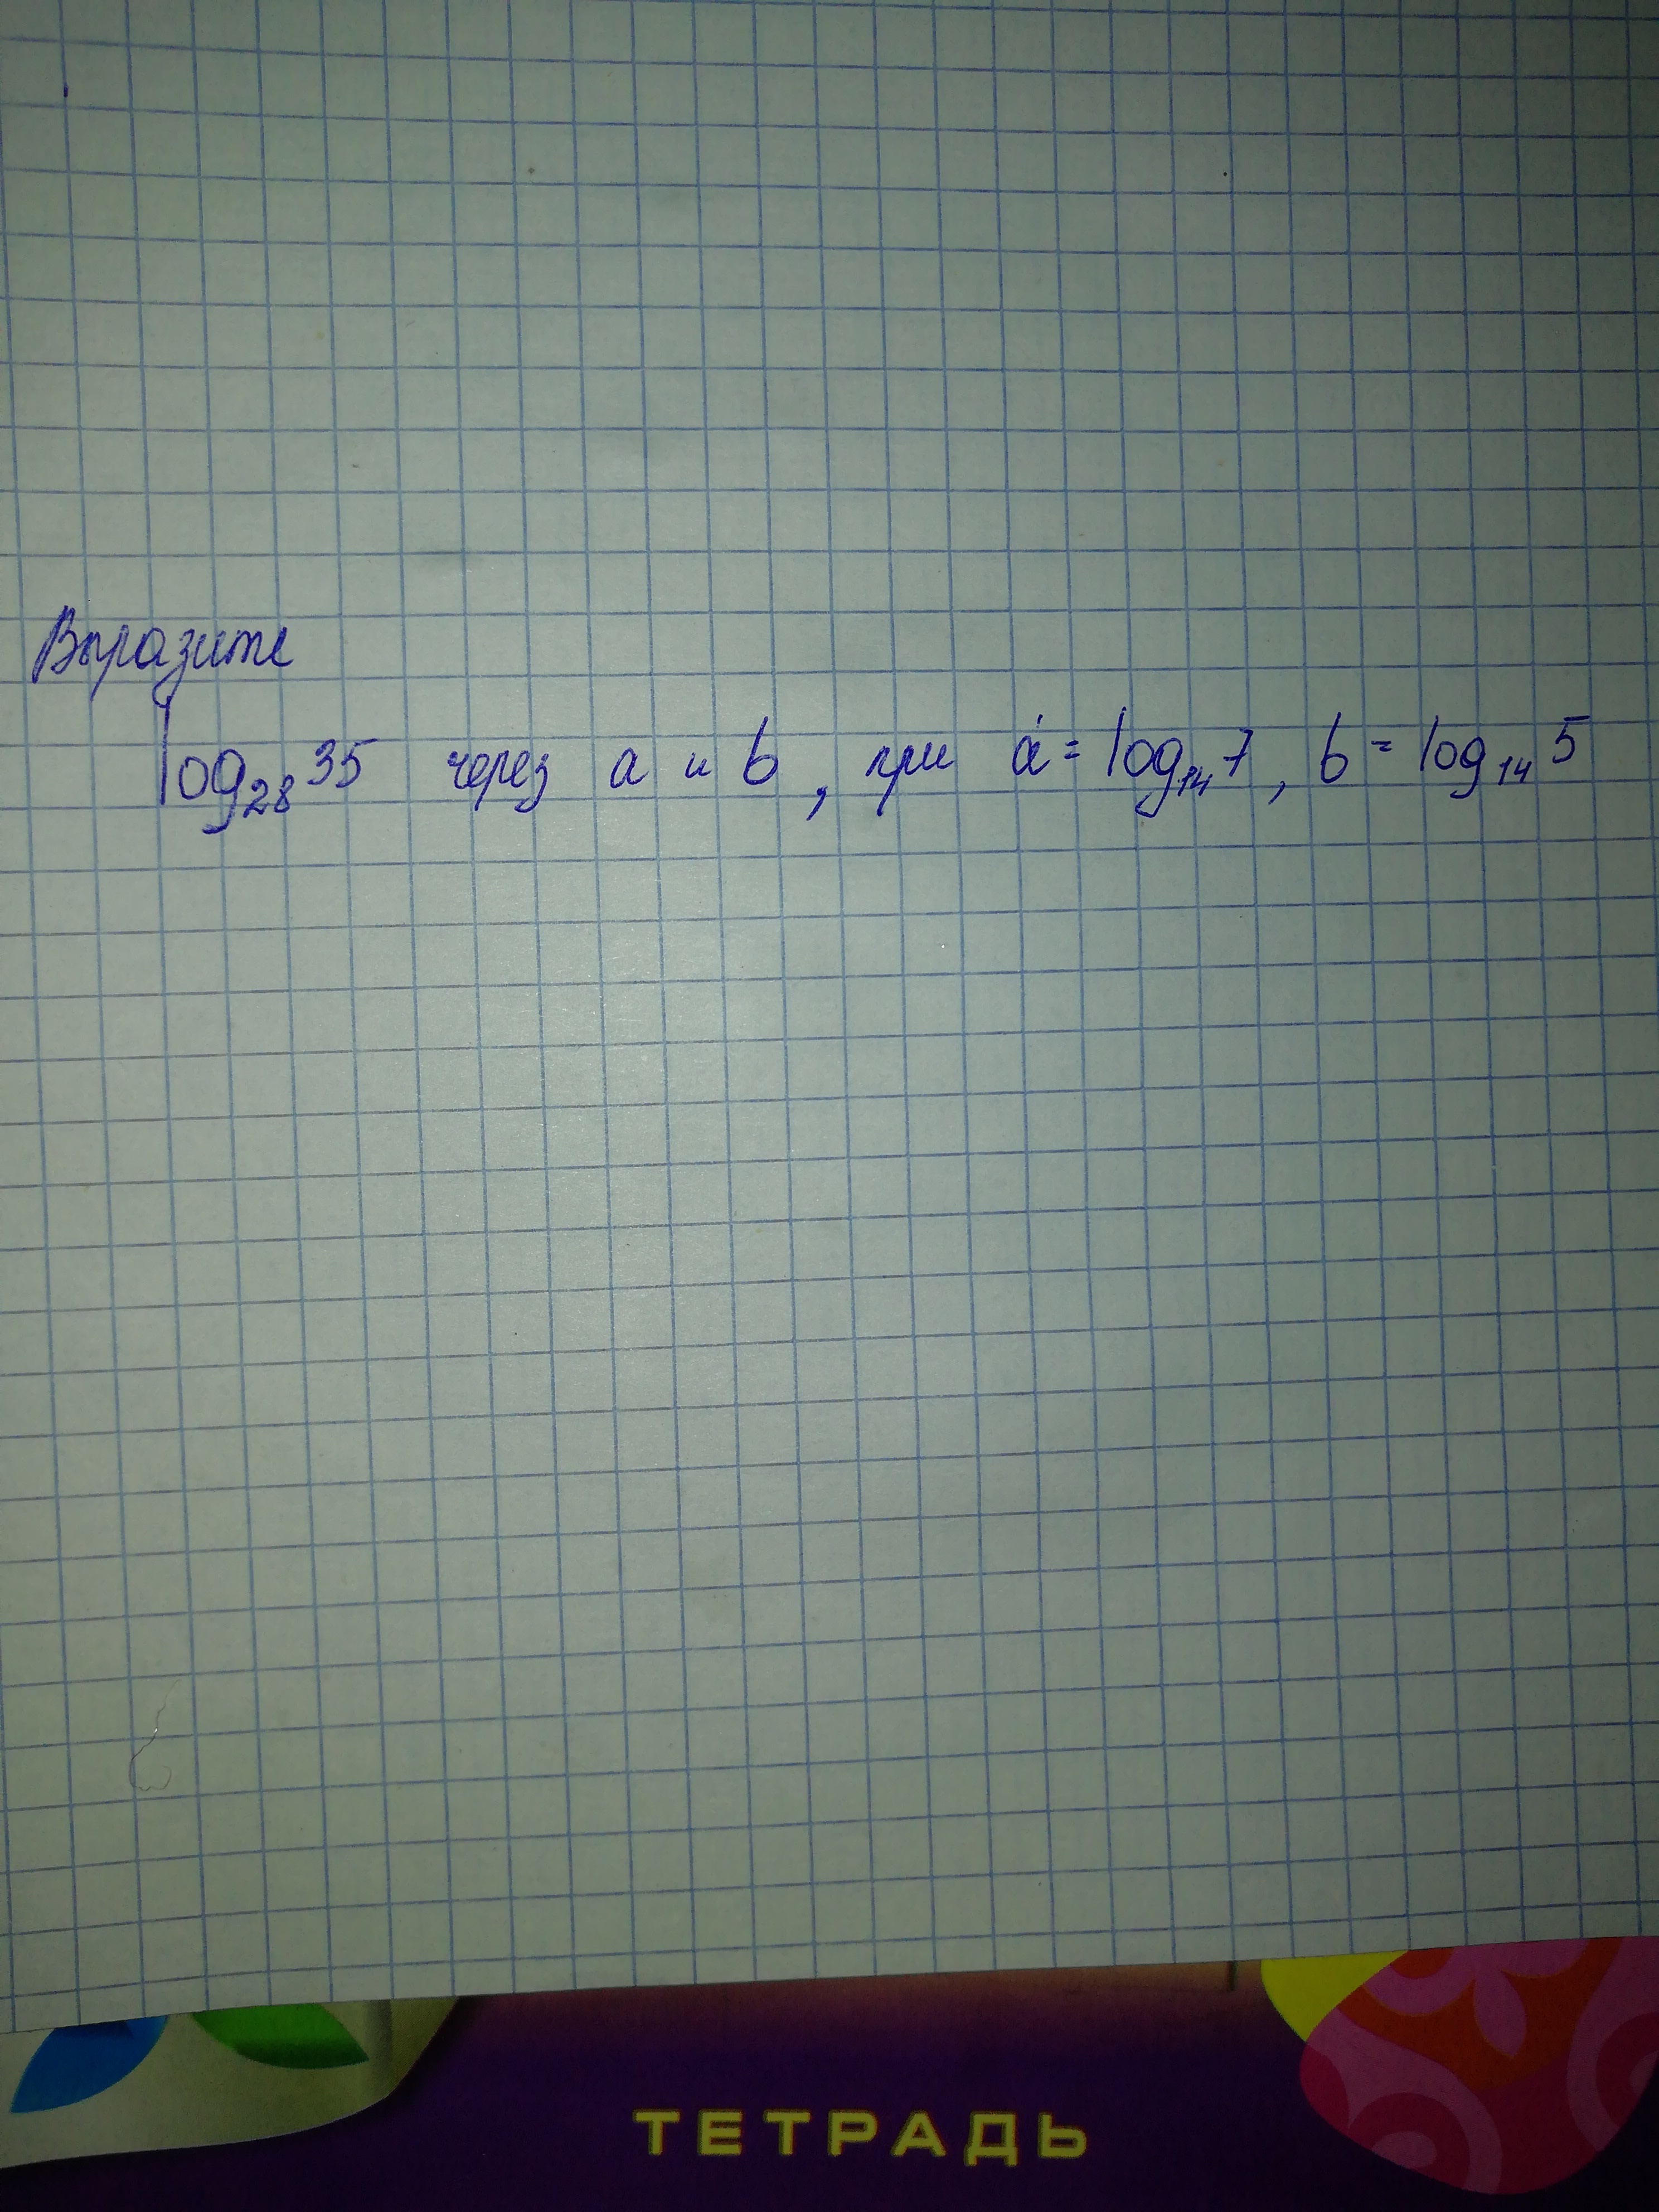 Выразите
log₂₈35 через a и b, при a = log₁₄7, b = log₁₄5
ТЕТРАДЬ